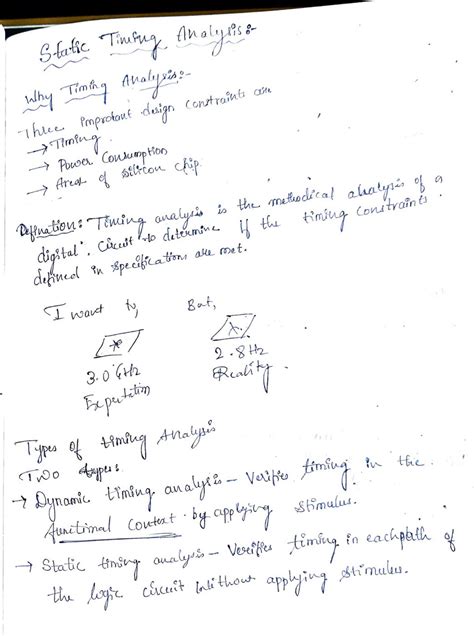 Static Timing Analysis:-
Why Timing Analysis:-
- Three improtant design constraints are
→ Timing
→ Power Consumption
→ Area of silicon chip.
Defination: Timing analysis is the methodical analysis of a
digital. Circuit to determine If the timing constraints
defined in specification are met.
I want to, But,
3.0 GHz 2.8Hz
Expectation Reality.
Types of timing Analysis
Two types.
→ Dynamic timing analysis - Verifies timing in the
functional Context by applying stimulus.
→ Static timing analysis - Verifies timing in each path of
the logic circuit without applying stimulus.